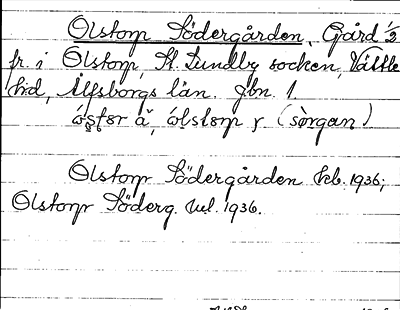 Olstorp Södergården, Gård 1/2
fr. i Olstorp, St. Lundby socken, Vättle
hd, Älfsborgs län. Jbn. 1.
å, ólstorp (sörgan)
Olstorp Södergården Keb. 1936;
Olstorp Söderg. 1936.